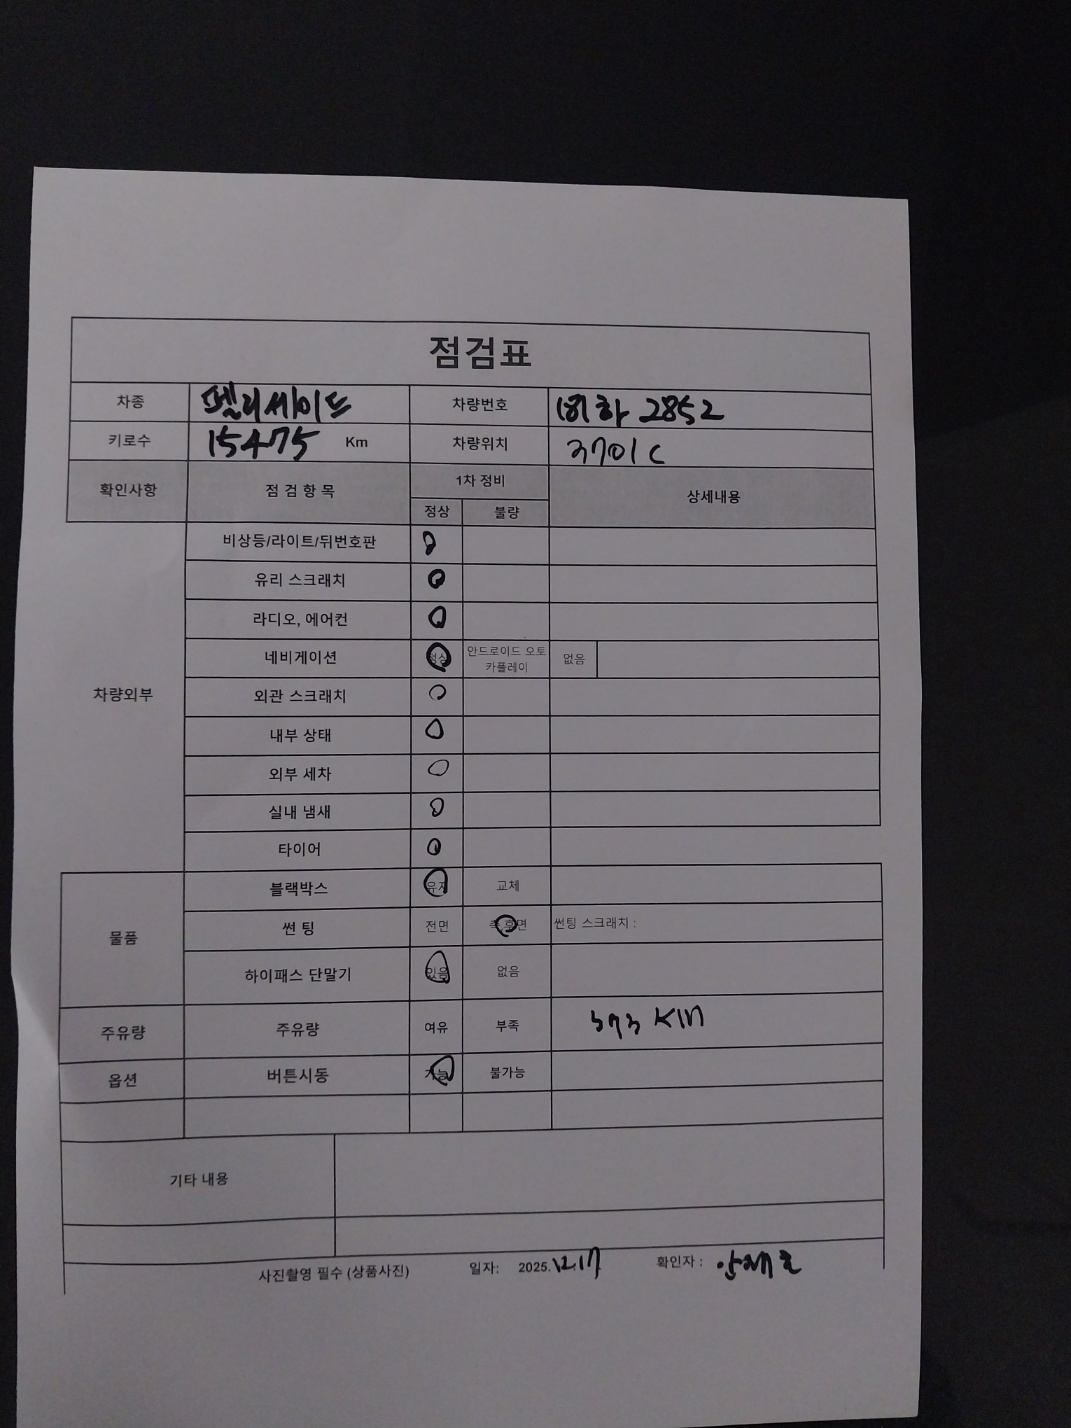 점검표
차종 펠리세이드 차량번호 187하 2852
키로수 15475 Km 차량위치 3701 C
확인사항 점 검 항 목 1차 정비 상세내용
정상 불량
차량외부
비상등/라이트/뒤번호판
유리 스크래치
라디오, 에어컨
네비게이션 정상 안드로이드 오토 없음
카플레이
외관 스크래치
내부 상태
외부 세차
실내 냄새
타이어
물품
블랙박스 교체
썬 팅 전면 측후면 썬팅 스크래치 :
하이패스 단말기 있음 없음
주유량 주유량 여유 부족 373 KM
옵션 버튼시동 가능 불가능
기타 내용
사진촬영 필수 (상품사진) 일자: 2025.12.17 확인자 :